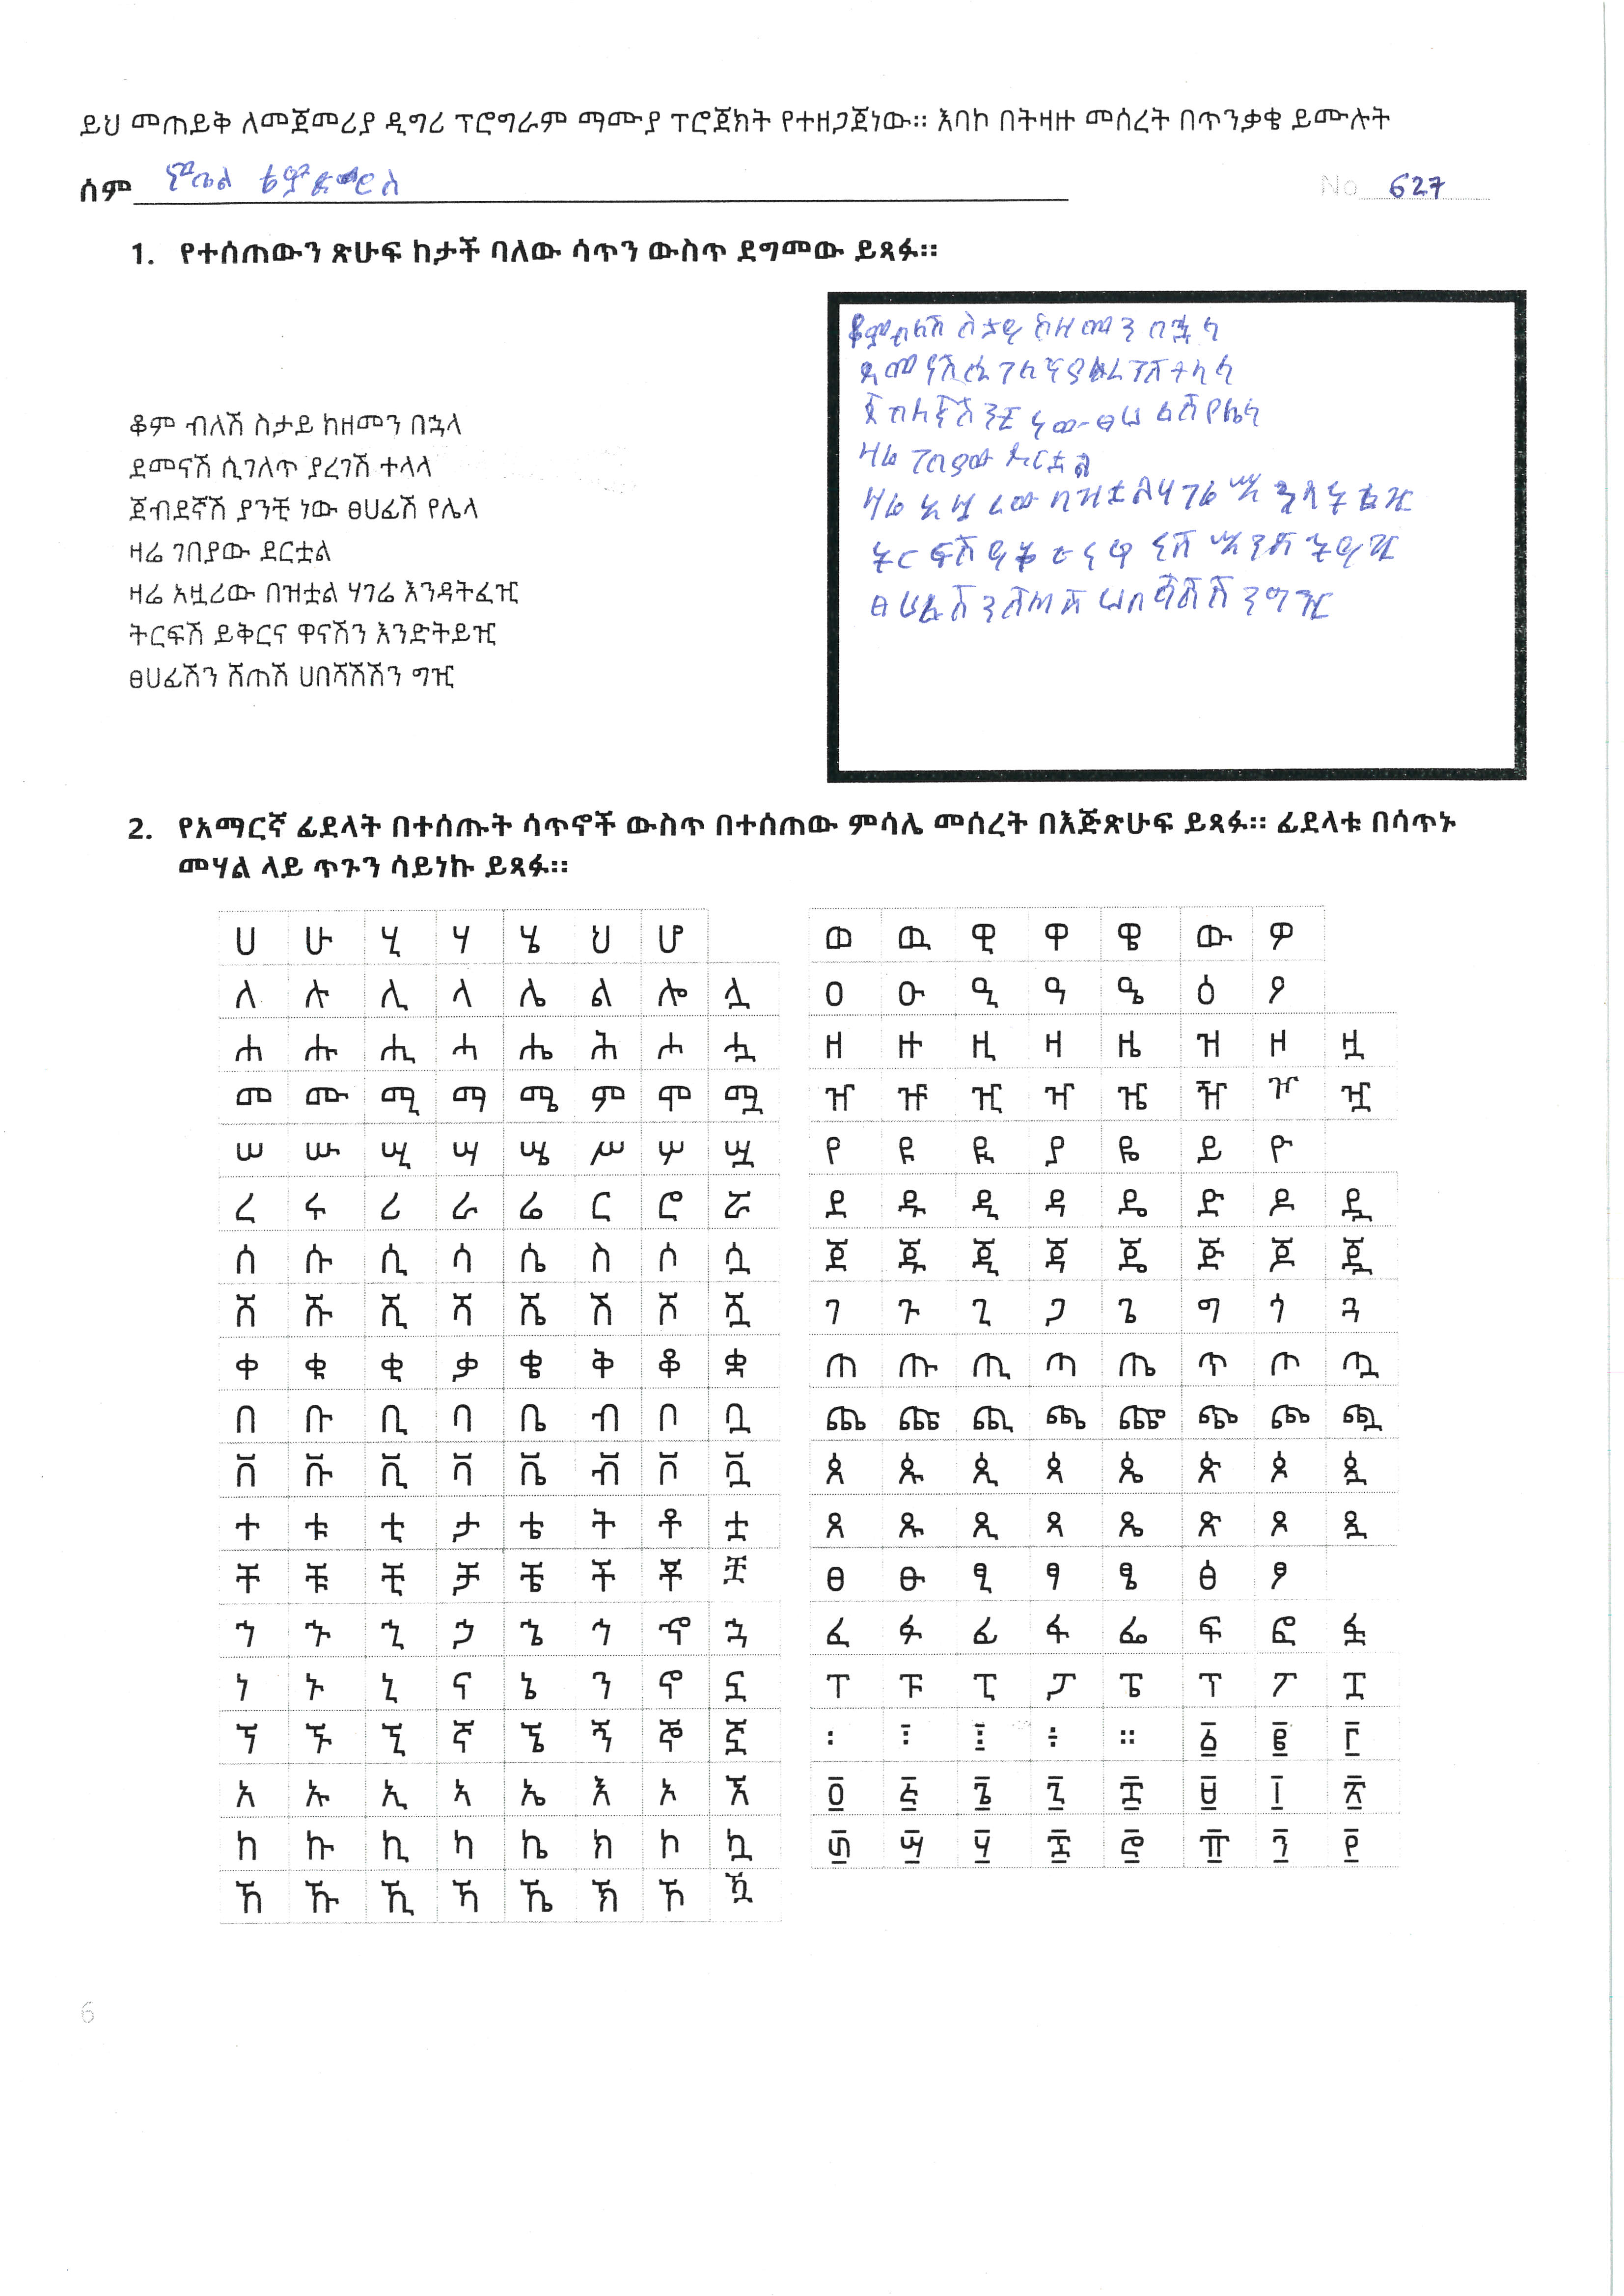 ይህ መጠይቅ ለመጀመሪያ ዲግሪ ፕሮግራም ማሙያ ፕሮጀክት የተዘጋጀነው። እባኮ በትዛዙ መሰረት በጥንቃቄ ይሙሉት
ሰም
No 627
1. የተሰጠውን ጽሁፍ ከታች ባለው ሳጥን ውስጥ ደግመው ይጻፉ።
ቆም ብለሽ ስታይ ከዘመን በኋላ
ደመናሽ ሲገለጥ ያረገሽ ተላላ
ጀብደኛሽ ያንቺ ነው ፀሀፊሽ የሌላ
ዛሬ ገበያው ደርቷል
ዛሬ አዟሪው በዝቷል ሃገሬ እንዳትፈዢ
ትርፍሽ ይቅርና ዋናሽን እንድትይዢ
ፀሀፊሽን ሸጠሽ ሀበሻሽሽን ግዢ
ቆምብለሽ ስታይ ከዘመን በኋላ
2. የአማርኛ ፊደላት በተሰጡት ሳጥኖች ውስጥ በተሰጠው ምሳሌ መሰረት በእጅጽሁፍ ይጻፉ። ፊደላቱ በሳጥኑ
መሃል ላይ ጥጉን ሳይነኩ ይጻፉ።
ሀ ሁ ሂ ሃ ሄ ህ ሆ
ለ ሉ ሊ ላ ሌ ል ሎ ሏ
ሐ ሑ ሒ ሓ ሔ ሕ ሖ ሗ
መ ሙ ሚ ማ ሜ ም ሞ ሟ
ሠ ሡ ሢ ሣ ሤ ሥ ሦ ሧ
ረ ሩ ሪ ራ ሬ ር ሮ ሯ
ሰ ሱ ሲ ሳ ሴ ስ ሶ ሷ
ሸ ሹ ሺ ሻ ሼ ሽ ሾ ሿ
ቀ ቁ ቂ ቃ ቄ ቅ ቆ ቋ
በ ቡ ቢ ባ ቤ ብ ቦ ቧ
ቨ ቩ ቪ ቫ ቬ ቭ ቮ ቯ
ተ ቱ ቲ ታ ቴ ት ቶ ቷ
ቸ ቹ ቺ ቻ ቼ ች ቾ ቿ
ኀ ኁ ኂ ኃ ኄ ኅ ኆ ኋ
ነ ኑ ኒ ና ኔ ን ኖ ኗ
ኘ ኙ ኚ ኛ ኜ ኝ ኞ ኟ
አ ኡ ኢ ኣ ኤ እ ኦ ኧ
ከ ኩ ኪ ካ ኬ ክ ኮ ኳ
ኸ ኹ ኺ ኻ ኼ ኽ ኾ ዃ
ወ ዉ ዊ ዋ ዌ ው ዎ
ዐ ዑ ዒ ዓ ዔ ዕ ዖ
ዘ ዙ ዚ ዛ ዜ ዝ ዞ ዟ
ዠ ዡ ዢ ዣ ዤ ዥ ዦ ዧ
የ ዩ ዪ ያ ዬ ይ ዮ
ደ ዱ ዲ ዳ ዴ ድ ዶ ዷ
ጀ ጁ ጂ ጃ ጄ ጅ ጆ ጇ
ገ ጉ ጊ ጋ ጌ ግ ጎ ጓ
ጠ ጡ ጢ ጣ ጤ ጥ ጦ ጧ
ጨ ጩ ጪ ጫ ጬ ጭ ጮ ጯ
ጰ ጱ ጲ ጳ ጴ ጵ ጶ ጷ
ጸ ጹ ጺ ጻ ጼ ጽ ጾ ጿ
ፀ ፁ ፂ ፃ ፄ ፅ ፆ
ፈ ፉ ፊ ፋ ፌ ፍ ፎ ፏ
ፐ ፑ ፒ ፓ ፔ ፕ ፖ ፗ
፡ ፤ ፧ ፥ ። ፩ ፪ ፫
፬ ፭ ፮ ፯ ፰ ፱ ፲ ፳
፴ ፵ ፶ ፷ ፸ ፹ ፺ ፻
6